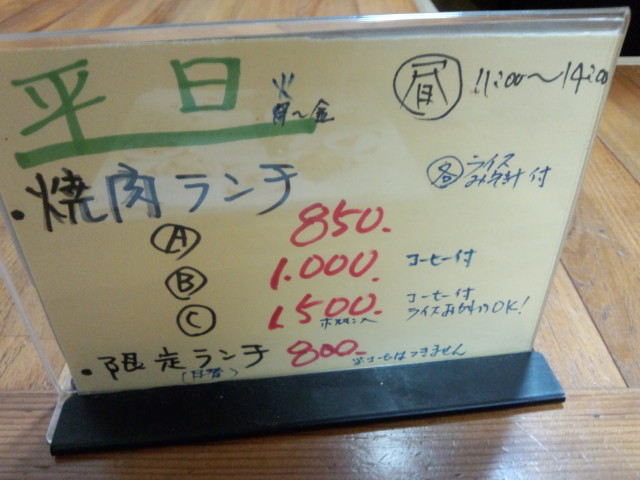 平日 火~金
昼 11:00~14:00
・焼肉ランチ
各 ライス みそ汁 付
A 850.
B 1.000. コーヒー付
C 1.500. コーヒー付 ライスおかわりOK!
ホルモン入
・限定ランチ 800. ※コーヒーはつきません